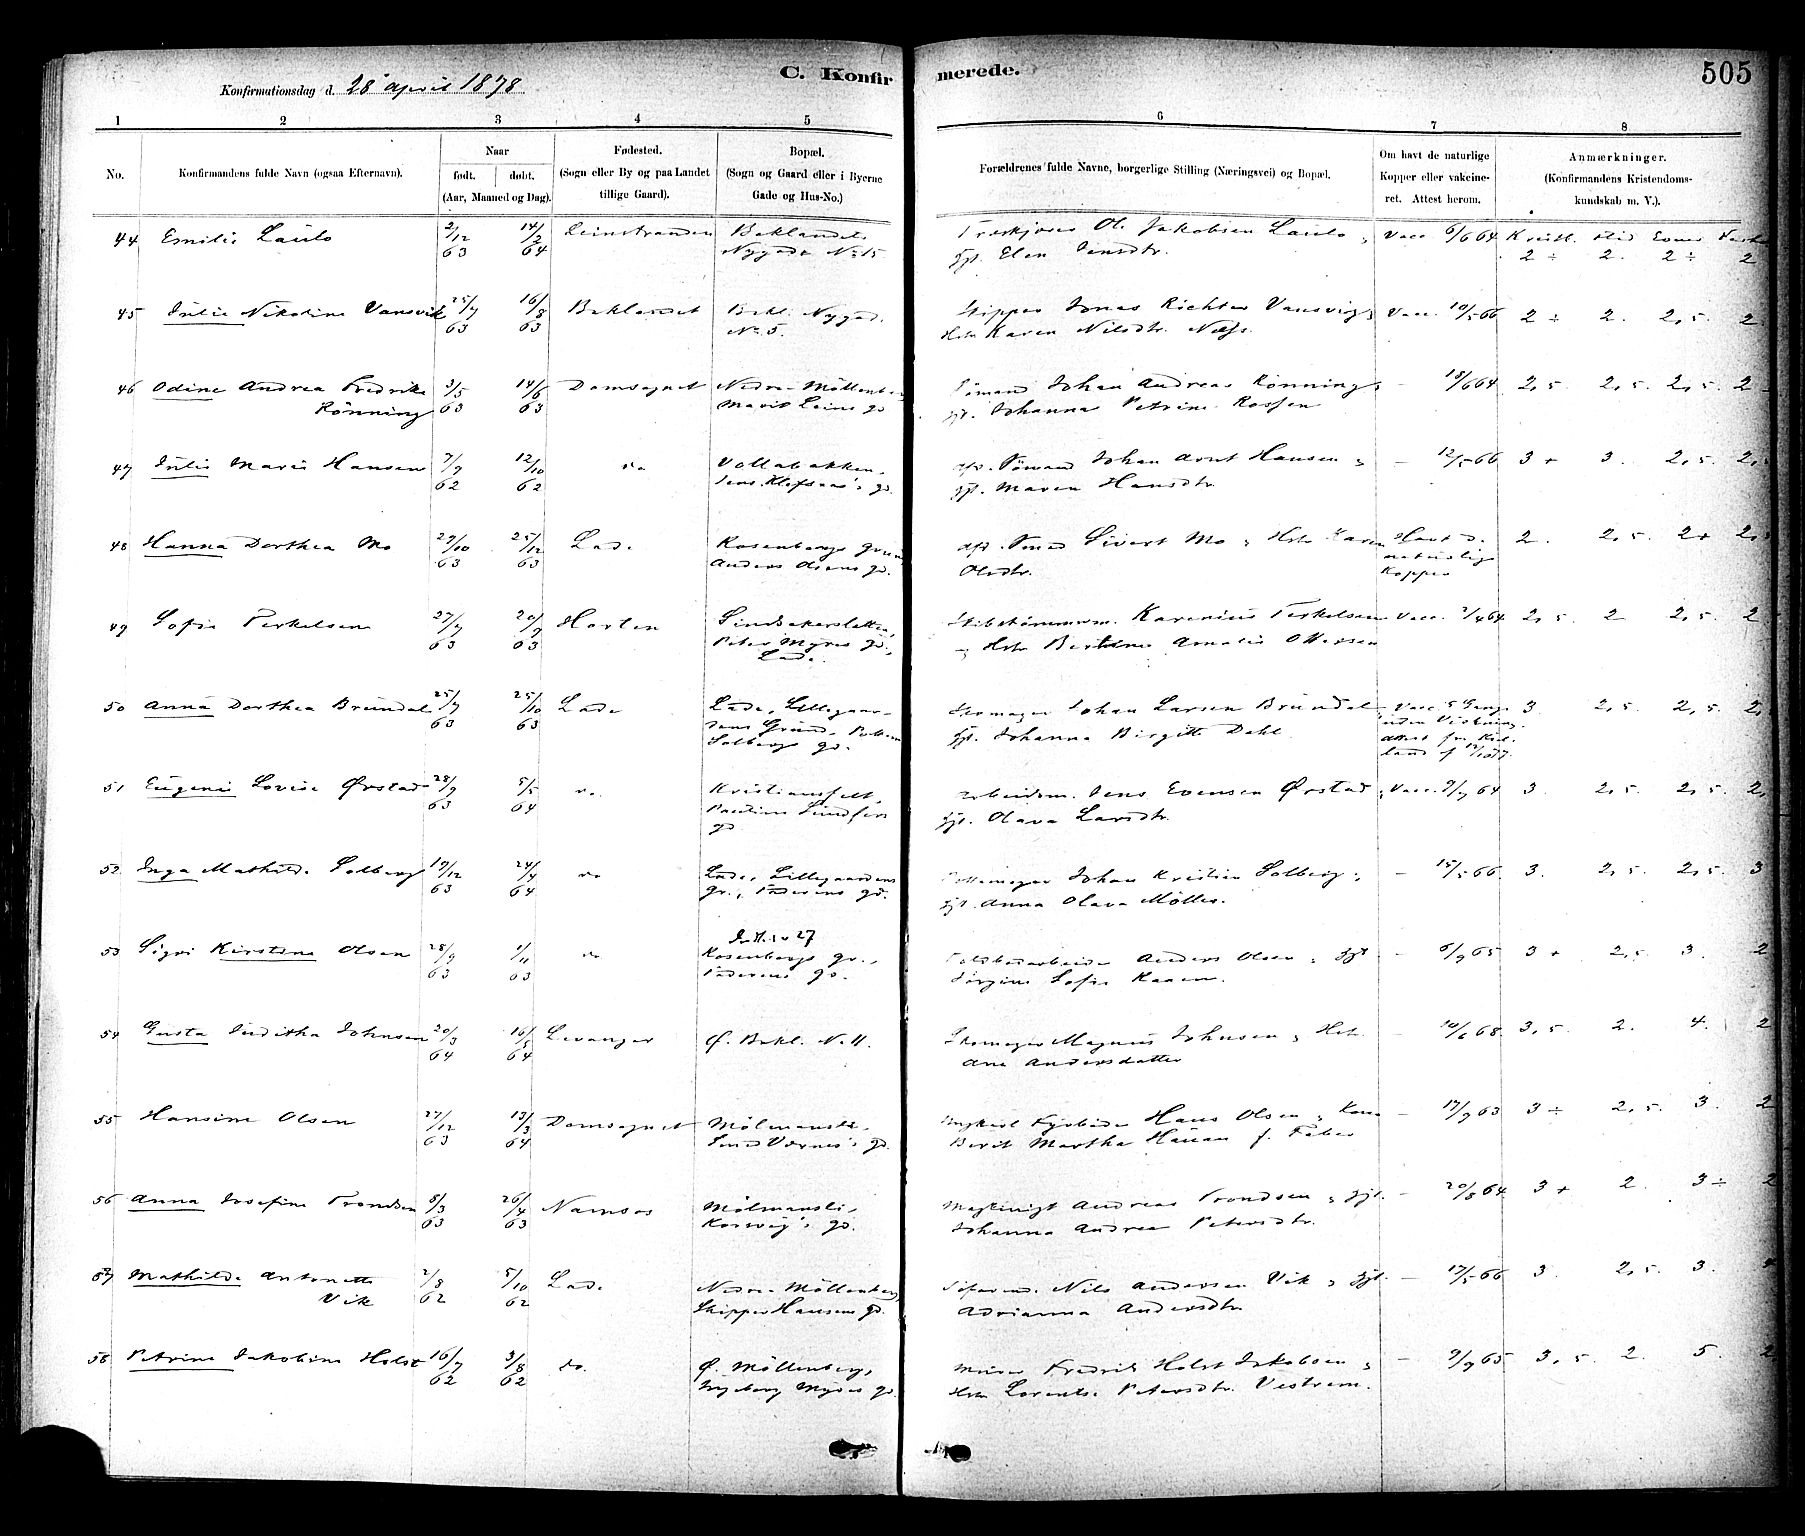 C. Konfirmerede.
505
Konfirmationsdag d. 28 april 1878
1 2 3 4 5 6 7 8
No.
Konfirmandens fulde Navn (ogsaa Efternavn).
Naar
født. døbt.
(Aar, Maaned og Dag).
Fødested.
(Sogn eller By og paa Landet
tillige Gaard).
Bopæl.
(Sogn og Gaard eller i Byerne
Gade og Hus-No.)
Forældrenes fulde Navne, borgerlige Stilling (Næringsvei) og Bopæl.
Om havt de naturlige
Kopper eller vakcine-
ret. Attest herom.
Anmærkninger.
(Konfirmandens Kristendoms-
kundskab m. V.).
44 Emilie Laulo 2/12 63 14/2 64 Leinstranden Baklandet,
Nygade No 15
Ol. Jakobsen Laulo Vacc. 6/6 64 Kristl. Flid Evner
gjl. Elen Jensdtr. 2 ÷ 2. 2 ÷ 2
45 Julie Nikoline Vansvik 25/7 63 16/8 63 Baklandet Bakl. Nygad.
No 5.
Skipper Jonas Richter Vansvig, Vacc. 10/5 66 2 ÷ 2. 2,5. 2
Hstr Karen Nilsdtr. Næss.
46 Odine Andrea Fredrikke
Rönning 3/5 63 14/6 63 Domsognet Nedre Möllenberg
Marit Leins gd
Sömand Johan Andreas Rönning, – 18/6 64 2,5. 2,5. 2,5. 2
gjl. Johanna Petrine Rossen
47 Julie Marie Hansen 7/9 62 12/10 62 do Vollabakken,
Jens Klefsaas's gd.
afd. Sömand Johan Arnt Hansen, – 12/5 66 3 + 3. 2,5. 2,5
gjl. Maren Hansdtr.
48 Hanna Dorthea Mo 29/10 63 25/12 63 Lade Rosenbergs grund
Anders Olsens gd.
afd. Sivert Mo, Hstr Karen Havt d. 2. 2,5. 2 + 2,5
Olsdtr. naturlige
Kopper
49 Sofie Terkelsen 27/7 63 20/9 63 Horten
Peter Myres gd.,
Lade.
Karenius Terkelsen Vacc. 2/4 64 2,5. 2 2,5. 2
Hstr Amalie Ottersen
50 Anna Dorthea Brundal 25/7 63 25/10 63 Lade Lade, Lillegaar-
dens Grund,
Solbergs gd.
Skomager Johan Larsen Brundal, Vacc. 5 Gange 3. 2,5. 2,5. 2,
gjl. Johanna Birgitte Dahl uden Virkning.
51 Eugenie Lovise Ørstad 28/9 63 5/5 64 do. Kristiansfelt,
gd
Arbeidsm. Jens Evensen Ørstad, Vacc. 9/7 64 3. 2,5. 2,5. 2,
gjl. Olava Larsdtr.
52 Inga Mathilde Solberg 19/12 63 24/4 64 do Lade, Lillegaardens
gr., Faderens gd.
Pottemager Johan Kristian Solberg, – 15/5 66. 3. 2,5. 2,5. 3
gjl. Anna Olava Möller.
53 Sigri Kirstine Olsen 28/9 63 1/11 63 do
Rosenbergs gr.,
Faderens gd.
Anders Olsen, gjl. – 6/9 65 3 + 2,5. 3. 2
Sofie Kaaen.
54 Gusta Juditha Johnsen 20/3 64 16/5 64 Levanger Ø. Bakl. No 11.
Skomager Magnus Johnsen, Hstr. – 10/6 68. 3,5. 2. 4. 2
Ane Andersdatter
55 Hansine Olsen 27/12 63 13/3 64 Domsognet
gd.
Hans Olsen, Kone – 17/9 63 3 ÷ 2,5. 3. 2
Berit Martha f. Faber
56 Anna Josefine Trondsen 8/3 63 26/4 63 Namsos Mölmansli,
Korsvig's gd.
Andreas Trondsen, gjl. – 20/8 64 3 + 2. 3 ÷ 2
Johanna Andrea Petersdtr.
57 Mathilde Antonette
Vik 2/8 62 5/10 62 Lade Nedre Möllenberg,
Skipper Hansens gd.
Söfarend. Nils Andersen Vik, gjl. – 17/5 66 3. 2,5. 3. 4
Adrianna Andersdtr.
58 Petrine Jakobine Holst 16/7 62 3/8 62 do. Ø. Möllenberg,
Ingeborg Myres gd
Murer Fredrik Holst Jakobsen, – 9/9 65 3,5. 2. 5. 2
Hstr Lorentse Petersdtr. Vestrem.